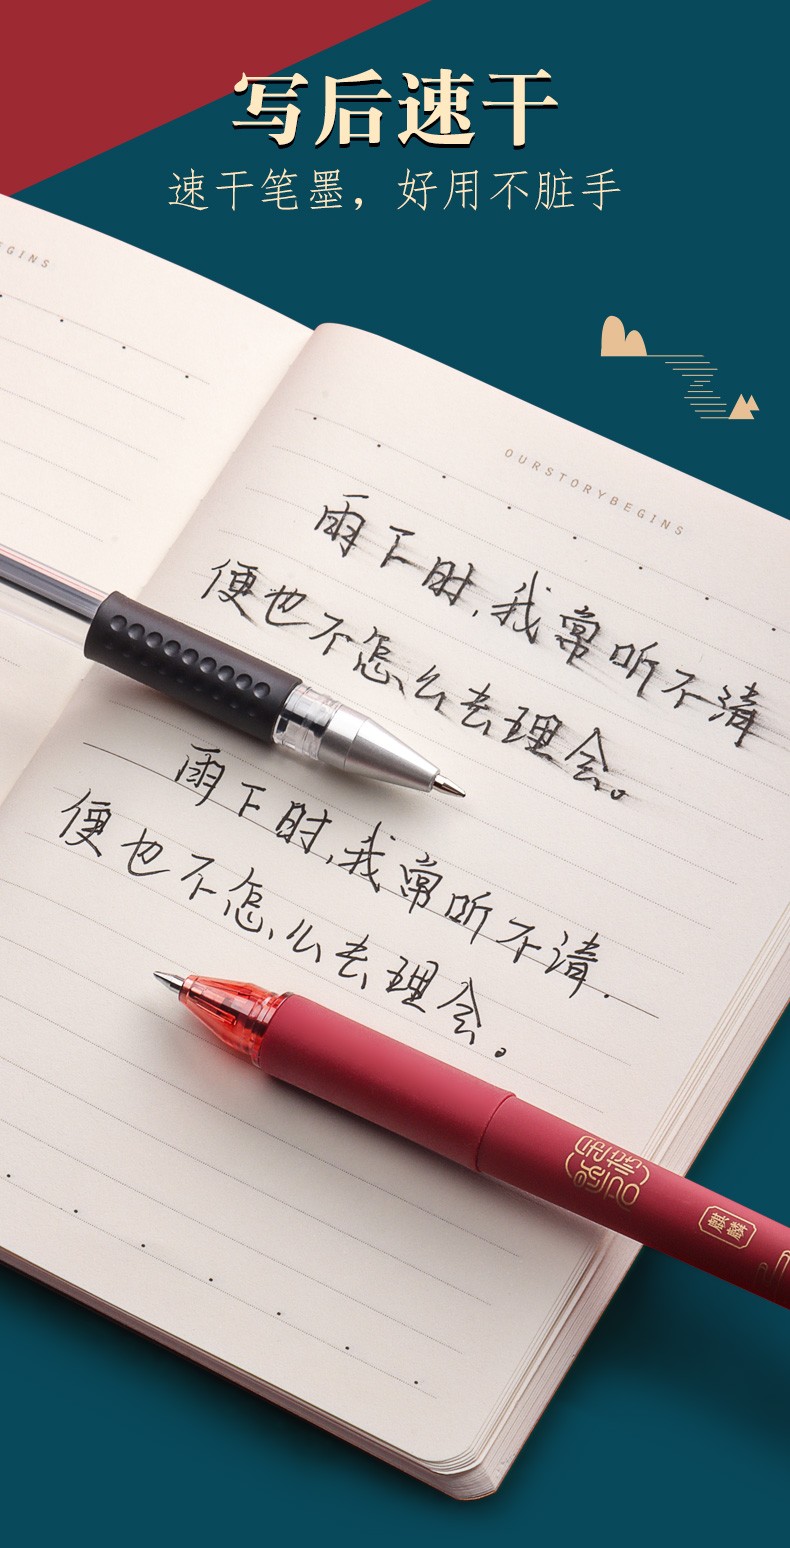 写后速干
速干笔墨，好用不脏手
EGINS
OURSTORYBEGINS
雨下时,我常听不清
便也不怎么去理会。
雨下时,我常听不清.
便也不怎么去理会。
麒麟